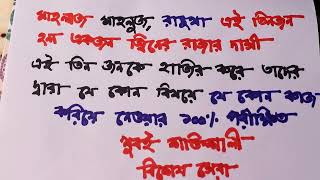 মাহলাজ মাহলুজ রামুখা এই তিনজন
হল একজন জ্বিনের রাজার দাসী
এই তিন জনকে হাজির করে তাদের
দ্বারা যে কোন বিষয়ে যে কোন কাজ
করিয়ে নেওয়ার ১০০% পরীক্ষিত
খুবই শক্তিশালী
বিশেষ সেবা